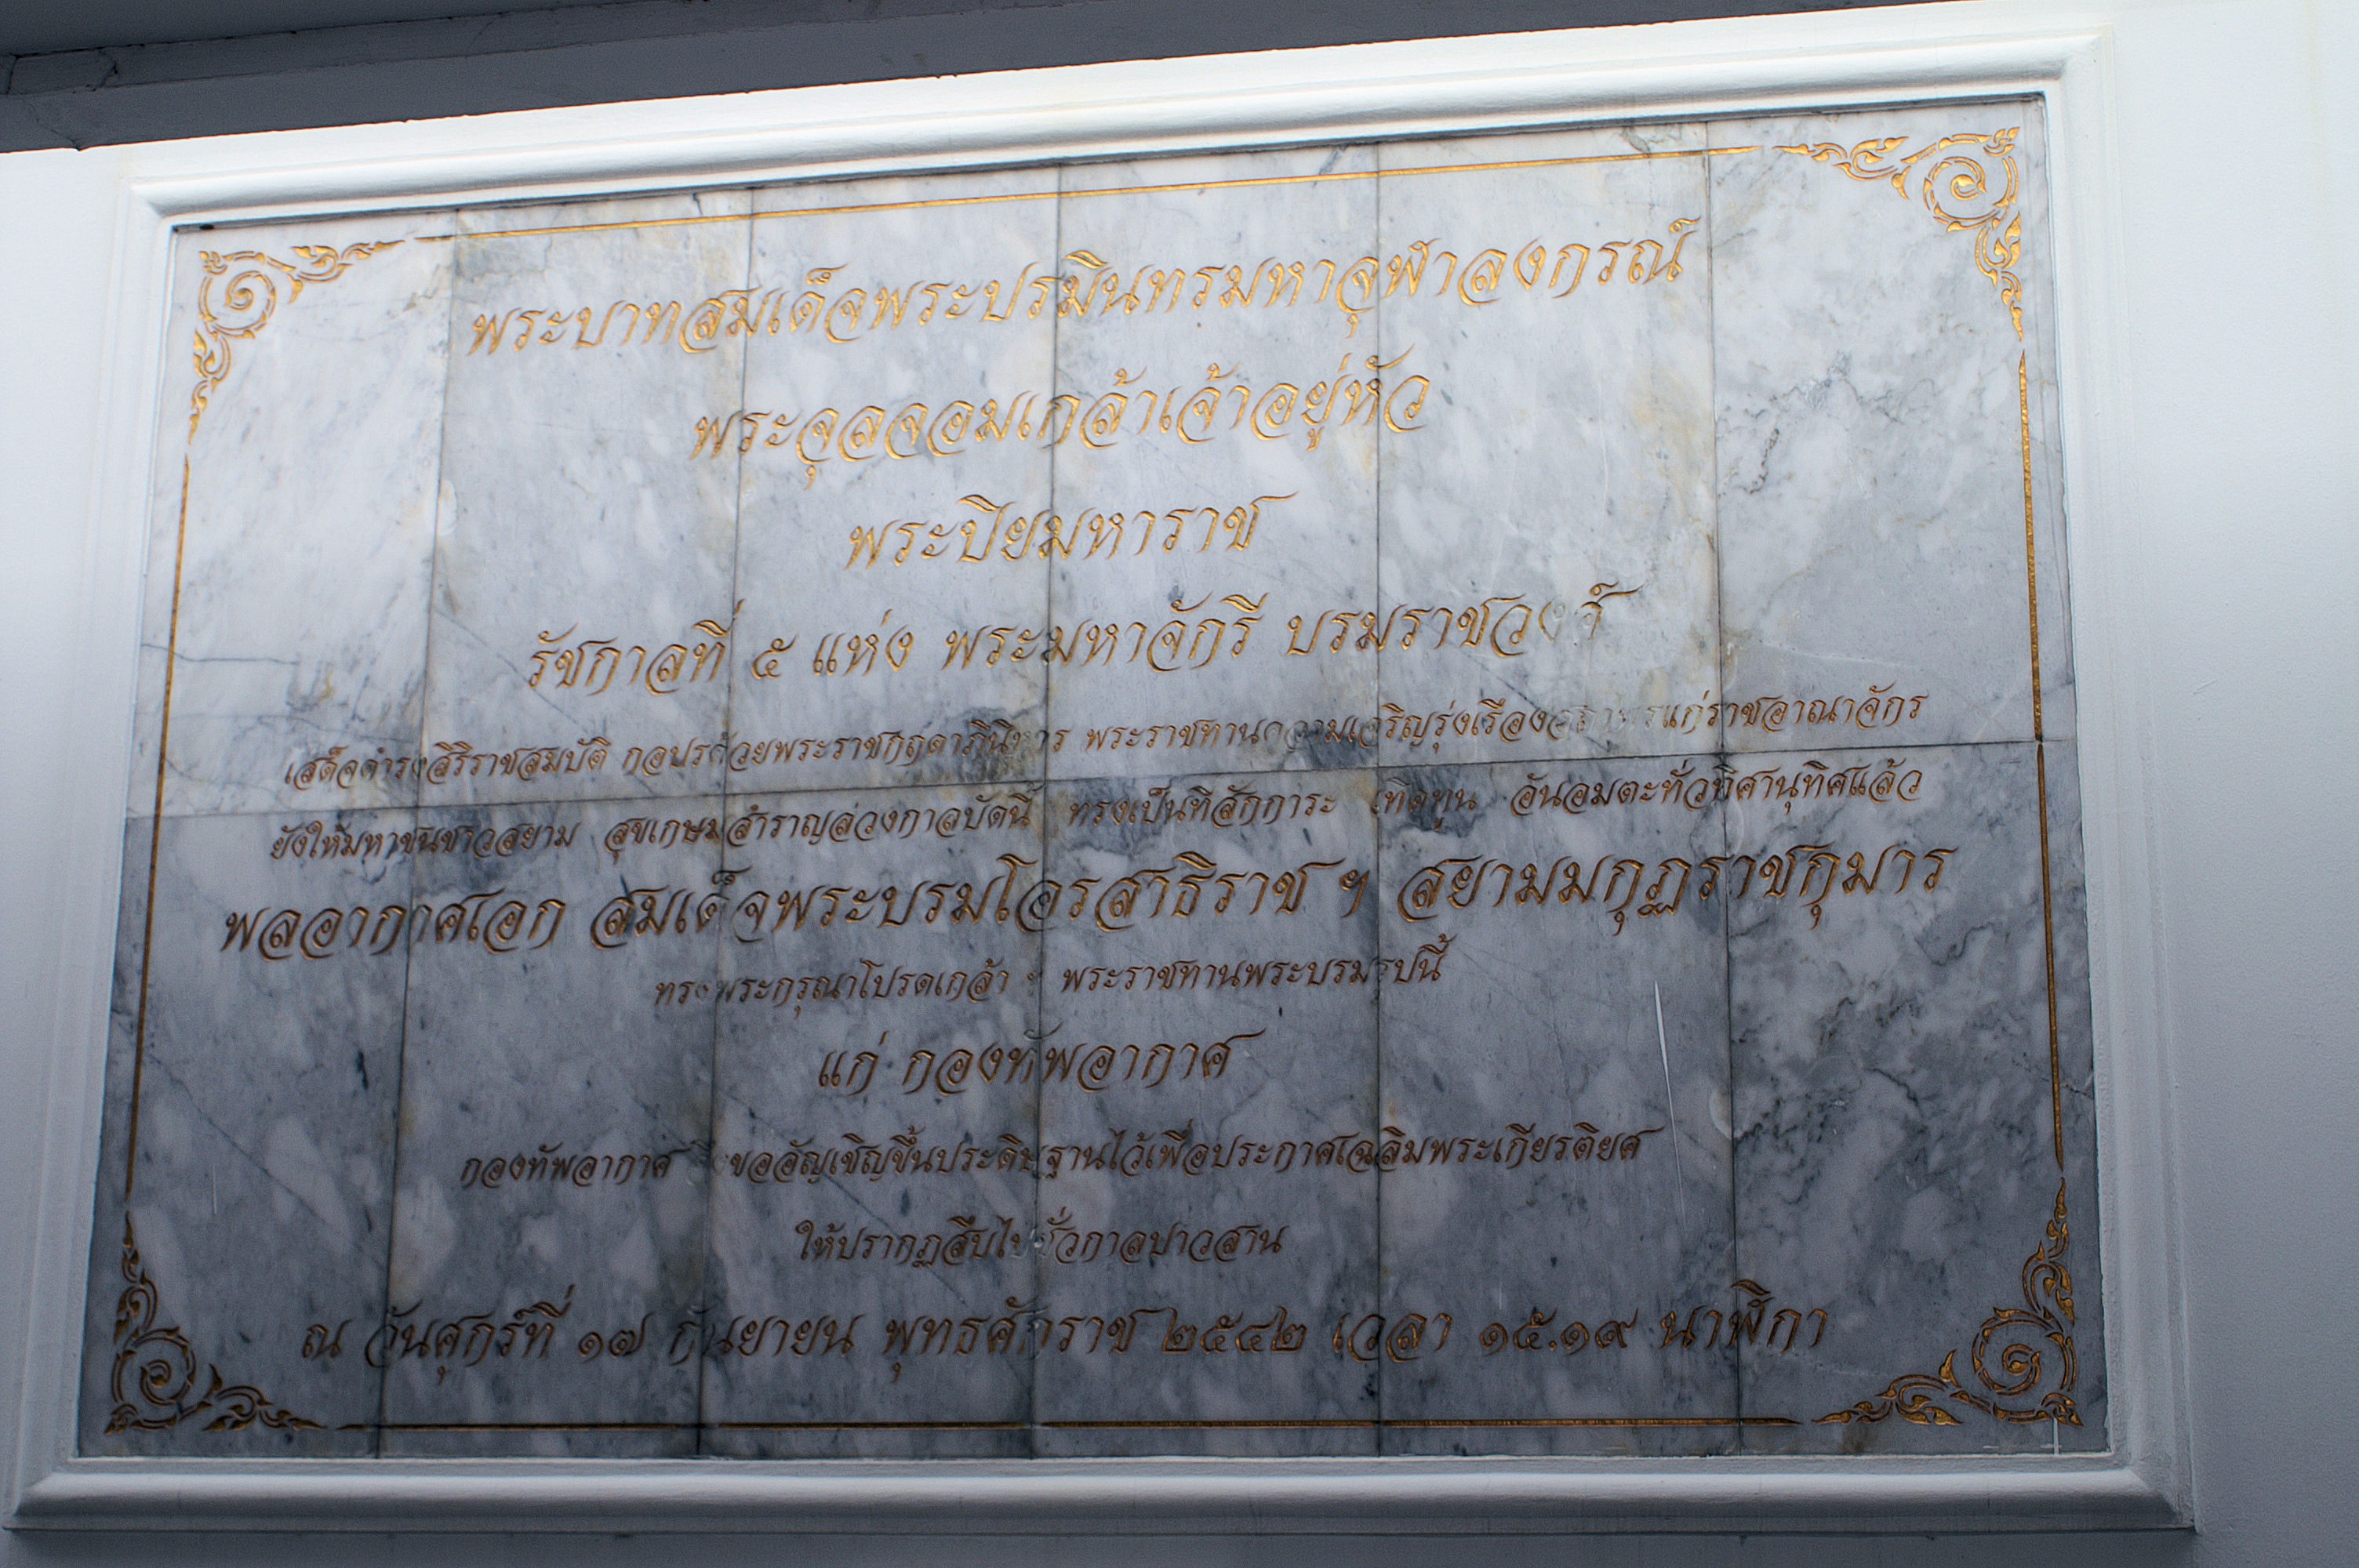 พระบาทสมเด็จพระปรมินทรมหาจุฬาลงกรณ์
พระจุลจอมเกล้าเจ้าอยู่หัว
พระปิยมหาราช
รัชกาลที่ ๕ แห่ง พระมหาจักรี บรมราชวงศ์
เสด็จดำรงสิริราชสมบัติ กอปรด้วยพระราชกฤดาภินิหาร พระราชทานความเจริญรุ่งเรือง แก่ราชอาณาจักร
ยังให้มหาชนชาวสยาม สุขเกษมสำราญล่วงกาลบัดนี้ ทรงเป็นที่สักการะ เทิดทูน อันอมตะทั่วทิศานุทิศแล้ว
พลอากาศเอก สมเด็จพระบรมโอรสาธิราช ฯ สยามมกุฎราชกุมาร
ทรงพระกรุณาโปรดเกล้า ฯ พระราชทานพระบรมรูปนี้
แก่ กองทัพอากาศ
กองทัพอากาศ ขออัญเชิญขึ้นประดิษฐานไว้เพื่อประกาศเฉลิมพระเกียรติยศ
ให้ปรากฏสืบไปชั่วกาลปาวสาน
ณ วันศุกร์ที่ ๑๗ กันยายน พุทธศักราช ๒๕๔๒ เวลา ๑๕.๑๙ นาฬิกา